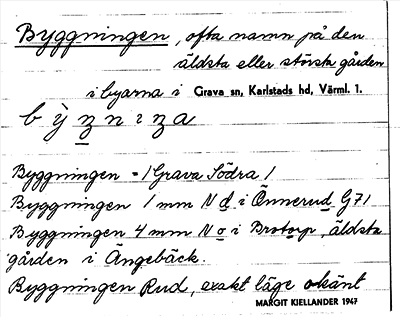 Byggningen, ofta namn på den
äldsta eller största gården
i byarna i Grava sn, Karlstads hd, Värml. 1.
b ỳ z n ɩ z a
Byggningen = /Grava Södra/
Byggningen 1 mm N d i Önnerud G7/
Byggningen 4 mm N o i Brotorp, äldsta
gården i Ängebäck.
Byggningen Rud, exakt läge okänt
MARGIT KIELLANDER 1947